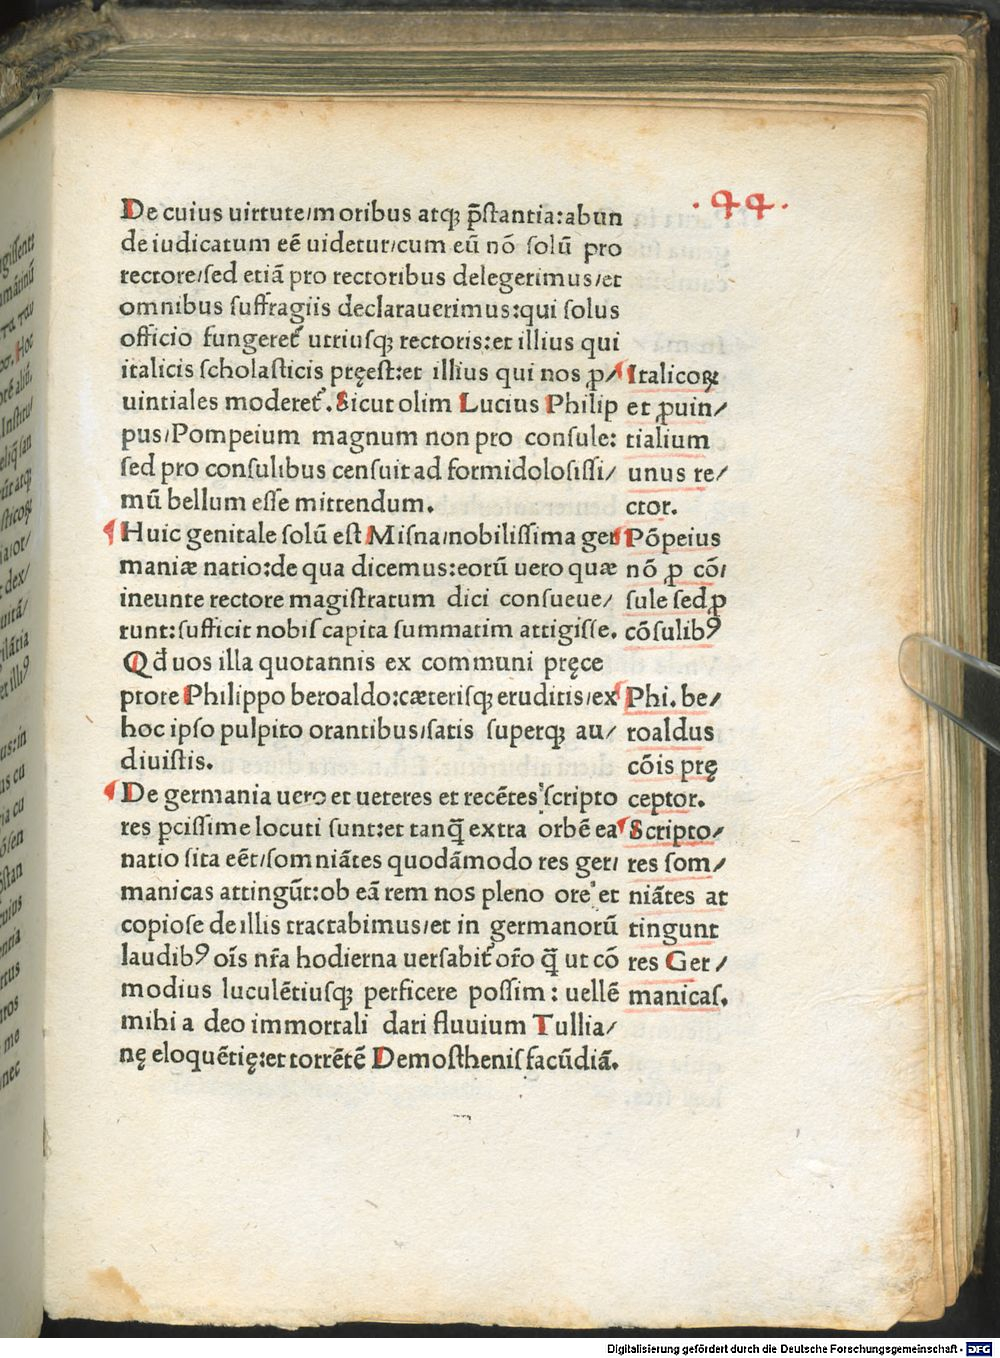 .44.
De cuius uirtute/moribus atqꝫ p̄stantia:abun
de iudicatum eē uidetur/cum eū nō solū pro
rectore/sed etiā pro rectoribus delegerimus/et
omnibus suffragiis declarauerimus:qui solus
officio fungeret᷑ utriusqꝫ rectoris:et illius qui
italicis scholasticis pręest:et illius qui nos ꝓ/
uintiales moderet᷑. Sicut olim Lucius Philip
pus/Pompeium magnum non pro consule:
sed pro consulibus censuit ad formidolosissi/
mū bellum esse mittendum.
Huic genitale solū est Misna/nobilissima ger
maniæ natio:de qua dicemus:eorū uero quæ
ineunte rectore magistratum dici consueue/
runt:sufficit nobis capita summatim attigisse.
Qd̄ uos illa quotannis ex communi pręce
ptore Philippo beroaldo:cæterisqꝫ eruditis/ex
hoc ipso pulpito orantibus/satis superqꝫ au/
diuistis.
De germania uero et ueteres et recētes scripto
res pcissime locuti sunt:et tanq̄ extra orbē ea
natio sita eēt/somniātes quodāmodo res ger/
manicas attingūt:ob eā rem nos pleno ore et
copiose de illis tractabimus/et in germanorū
laudibꝰ oīs nr̄a hodierna uersabit᷑ or̄o q̄ ut cō
modius luculētiusqꝫ perficere possim: uellē
mihi a deo immortali dari fluuium Tullia/
nę eloquētię:et torrētē Demosthenis facūdiā.
Italicoꝝ
et ꝓuin/
tialium
unus re/
ctor.
Pōpeius
nō ꝓ cō/
sule sed ꝓ
cōsulibꝰ
Phi. be/
roaldus
cōis prę
ceptor.
Scripto/
res som/
niātes at
tingunt
res Ger/
manicas.
Digitalisierung gefördert durch die Deutsche Forschungsgemeinschaft - DFG